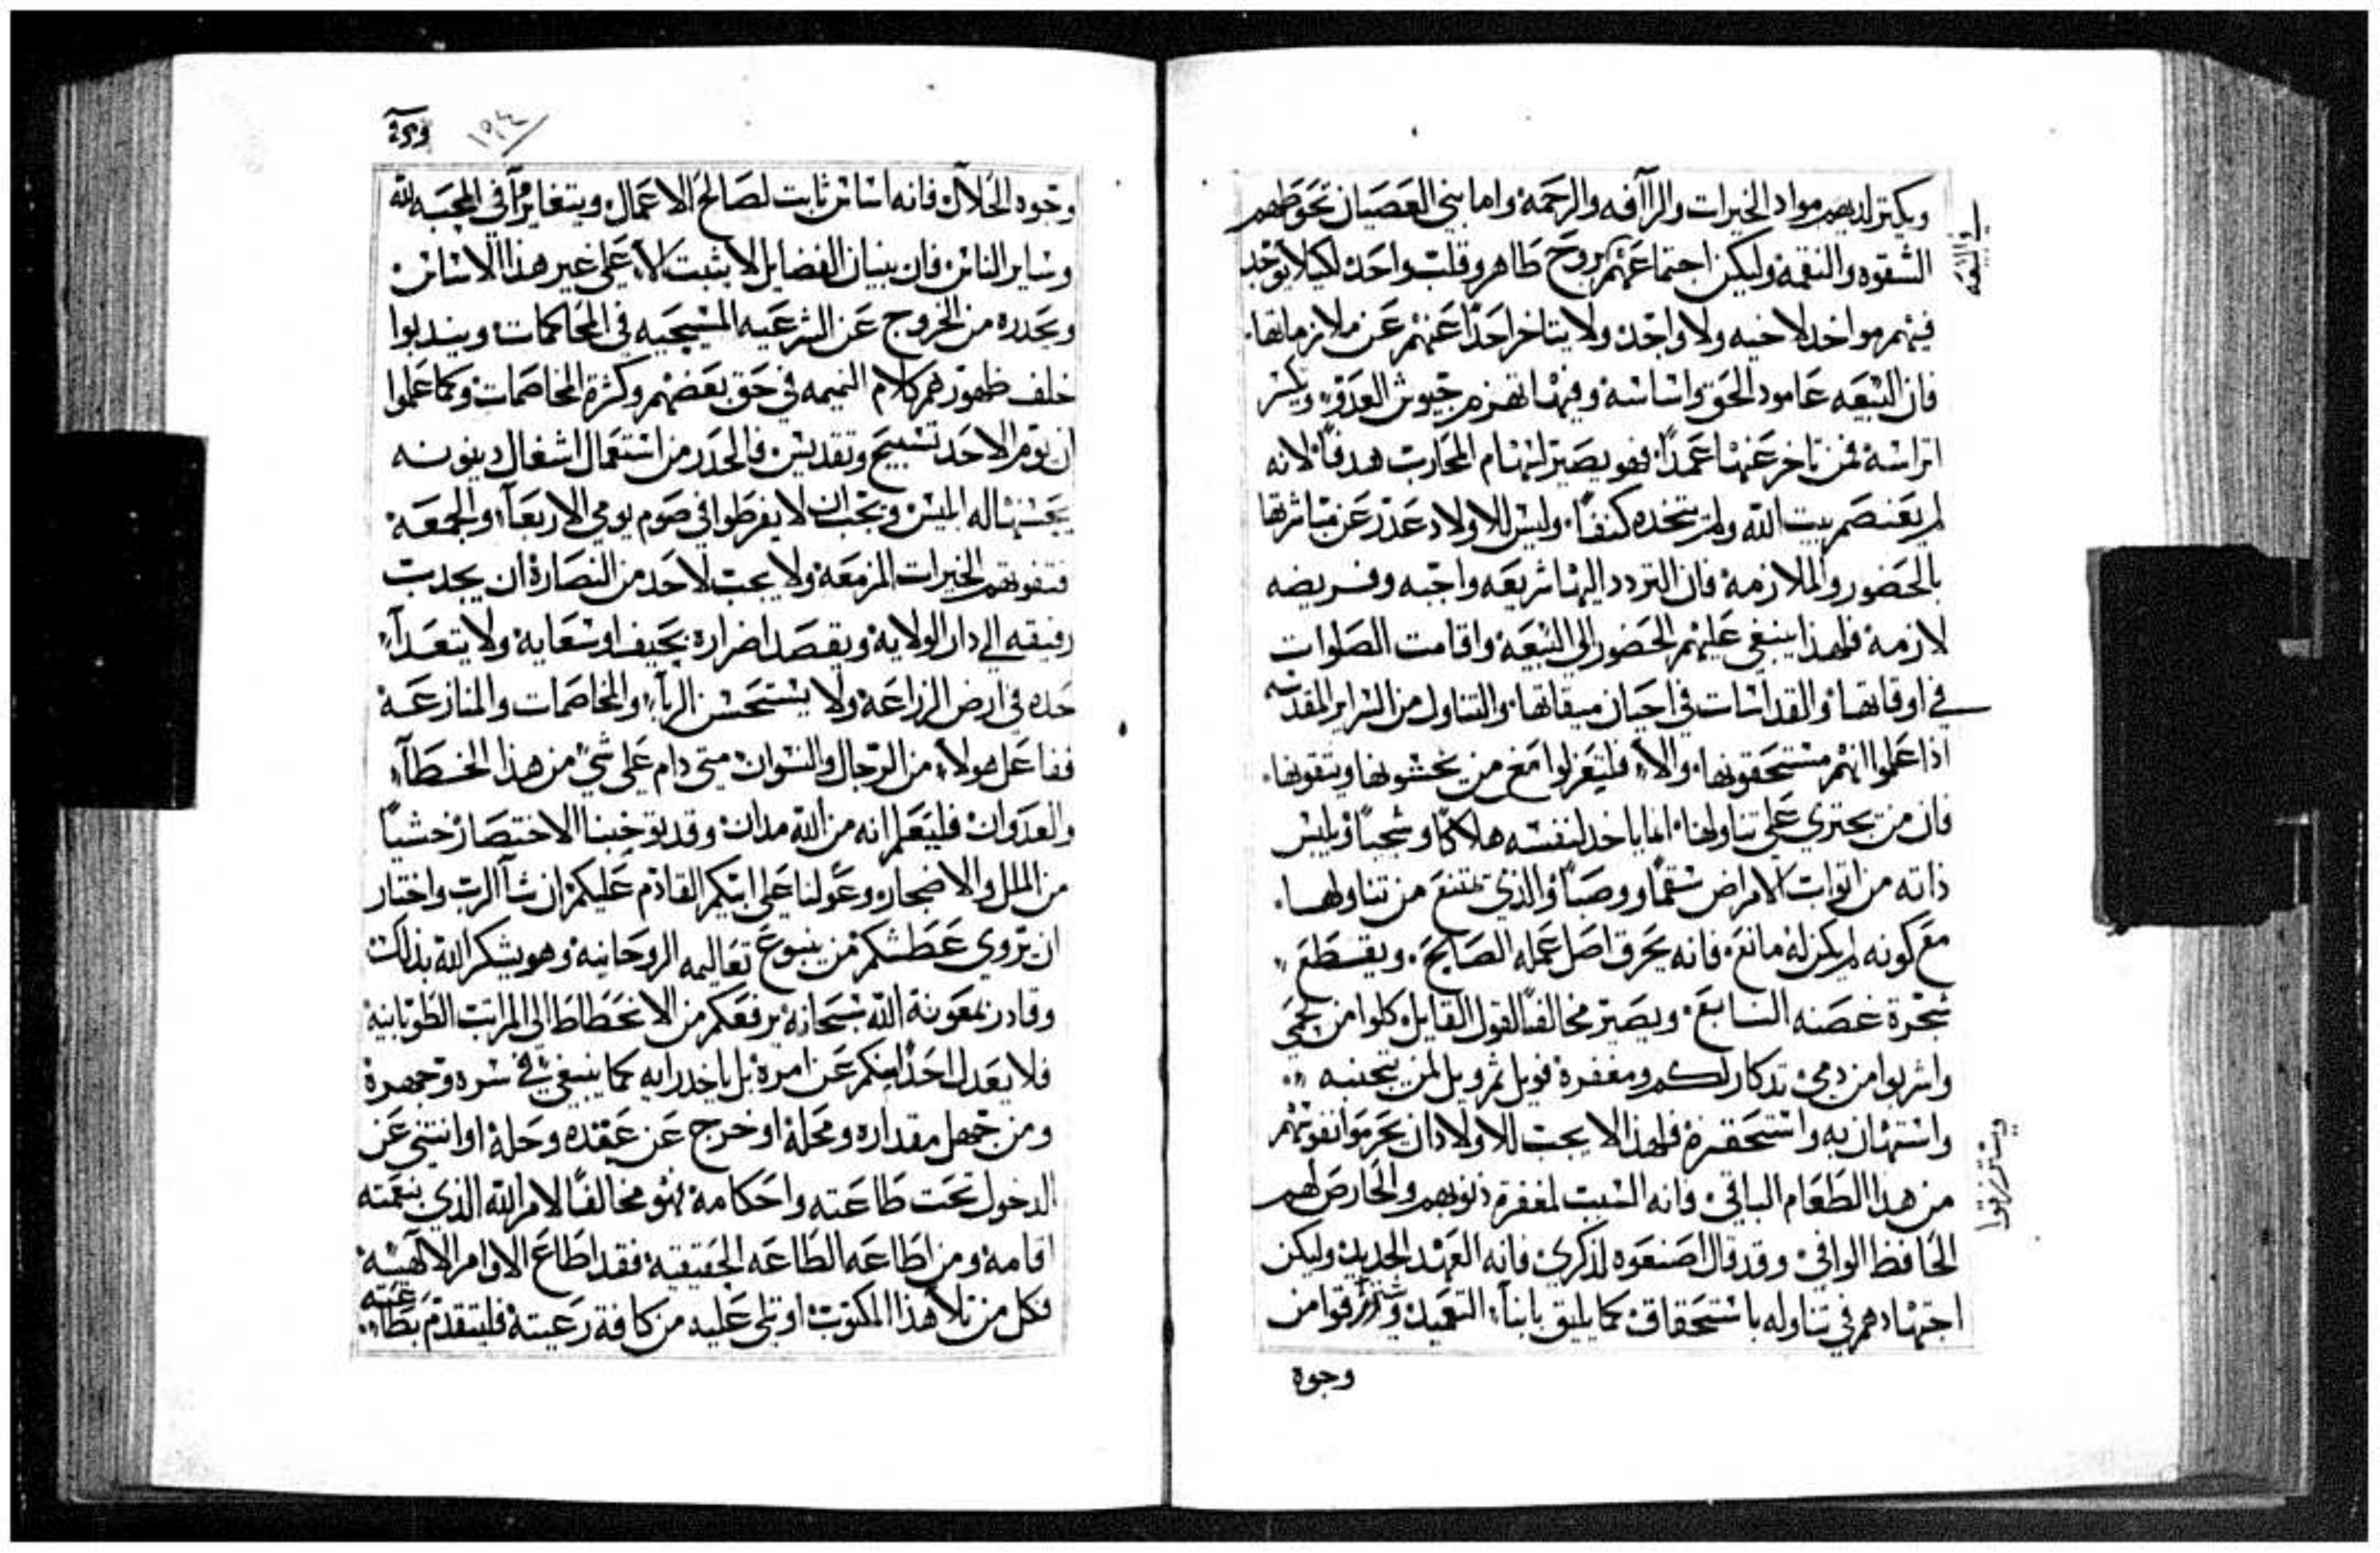 ويكثر لديهم مواد الخيرات والرآافه والرحمة واما بني العصيان تحوطهم
الشقوه والنقمة وليكن اجتماعهم بروح طاهر وقلب واحد لكيلا يوجد
في البيعه
فيهم مواخد لاخيه ولا واجد ولا يتاخر احدًا عنهم عن ملازماتها
فان البيعه عامود الحق واساسه وفيها تهزم جيوش العدو ويكسر
اتراسه فمن تاخر عنها عمدًا فهو يصير لسهام المحارب هدفًا لانه
لم يعتصم ببيت الله ولم يتخده كنفًا وليس للاولاد عدر عن مباشرتها
بالحضور والملازمة فان التردد اليها شريعه واجبه وفريضه
لازمة فلهذا ينبغي عليهم الحضور الى البيعة واقامت الصلوات
في اوقاتها والقداسات في احيان ميقاتها والتناول من السراير المقدسه
اذا علموا انهم مستحقونها والا فليتعزلوا مع من يخشونها ويتقونها
فان من يجتري على تناولها انما ياخد لنفسه هلاكًا وشجبًا ويلبس
ذاته من اتواب الامراض سقمًا ووصبًا والذي يمتنع من تناولها
مع كونه لم يكن له مانع فانه يحرق اصل عمله الصالح ويقطع
شجرة غصنه السابع ويصير مخالفًا لقول القايل كلوا من لحمي
واشربوا من دمي تدكار لكم ومغفرة فويل ثم ويل لمن يتجنبه
واستهان به واستحقره فلهذا لا يجب للاولاد ان يحرموا نفوسهم
من هذا الطعام الباقي فانه السبب لمغفرة ذنوبهم والحارص لهم
الحافظ الوافي وقد قال اصنعوه لذكري فانه العهد الجديد وليكن
اجتهادهم في تناوله باستحقاق كما يليق بابناء التعميد ويسترزقوا من
ويسترزقوا
وجوه
١٩٤
وجوه الحلال فانه اساس ثابت لصالح الاعمال ويتغايرآ في المحبه لله
وساير الناس فان بنيان الفضايل لا يثبت الا على غير هذا الاساس
ويحدره من الخروج عن الشرعيه المسيحيه في المحاكمات وينبدوا
خلف ظهورهم كلام النميمه في حق بعضهم وكثرة المخاصمات وكما علموا
ان يوم الاحد تسبيح وتقديس فالحدر من استعمال اشغال دينونه
يحسنها له ابليس ويجب ان لا يفرطوا في صوم يومي الاربعآ والجمعة
فتفوتهم الخيرات المزمعة ولا يجب لاحد من النصارة ان يجدب
رفيقه الي دار الولاية ويقصد اضراره بحيف او سعاية ولا يتعدآ
حده في ارض الزراعة ولا يستحسن الربا والمخاصمات والمنازعة
ففاعل هولاء من الرجال والنسوان متى دام على شي من هذا الخطآ
والعدوان فليعلم انه من الله مدان وقد توخينا الاختصار خشيًا
من الملل والاضجار وعولنا على ابيكم القادم عليكم ان شآ الرب واختار
ان يروي عطشكم من ينبوع تعاليمه الروحانية وهو يشكر الله بذلك
وقادر بمعونة الله سبحانه يرفعكم من الانحطاط الى المراتب الطوبانية
فلا يعدل احدًا منكم عن امره بل ياخد رايه كما ينبغي في سره وجهره
ومن جهل مقداره ومحله او خرج عن عقده وحله او انتني عن
الدخول تحت طاعته واحكامه فهو مخالفًا لامر الله الذي بنعمته
اقامه ومن اطاعه الطاعه الحقيقية فقد اطاع الاوامر الالهية
فكل من تلا هذا المكتوب او تلي عليه من كافة رعيته فليتقدم بطاعته